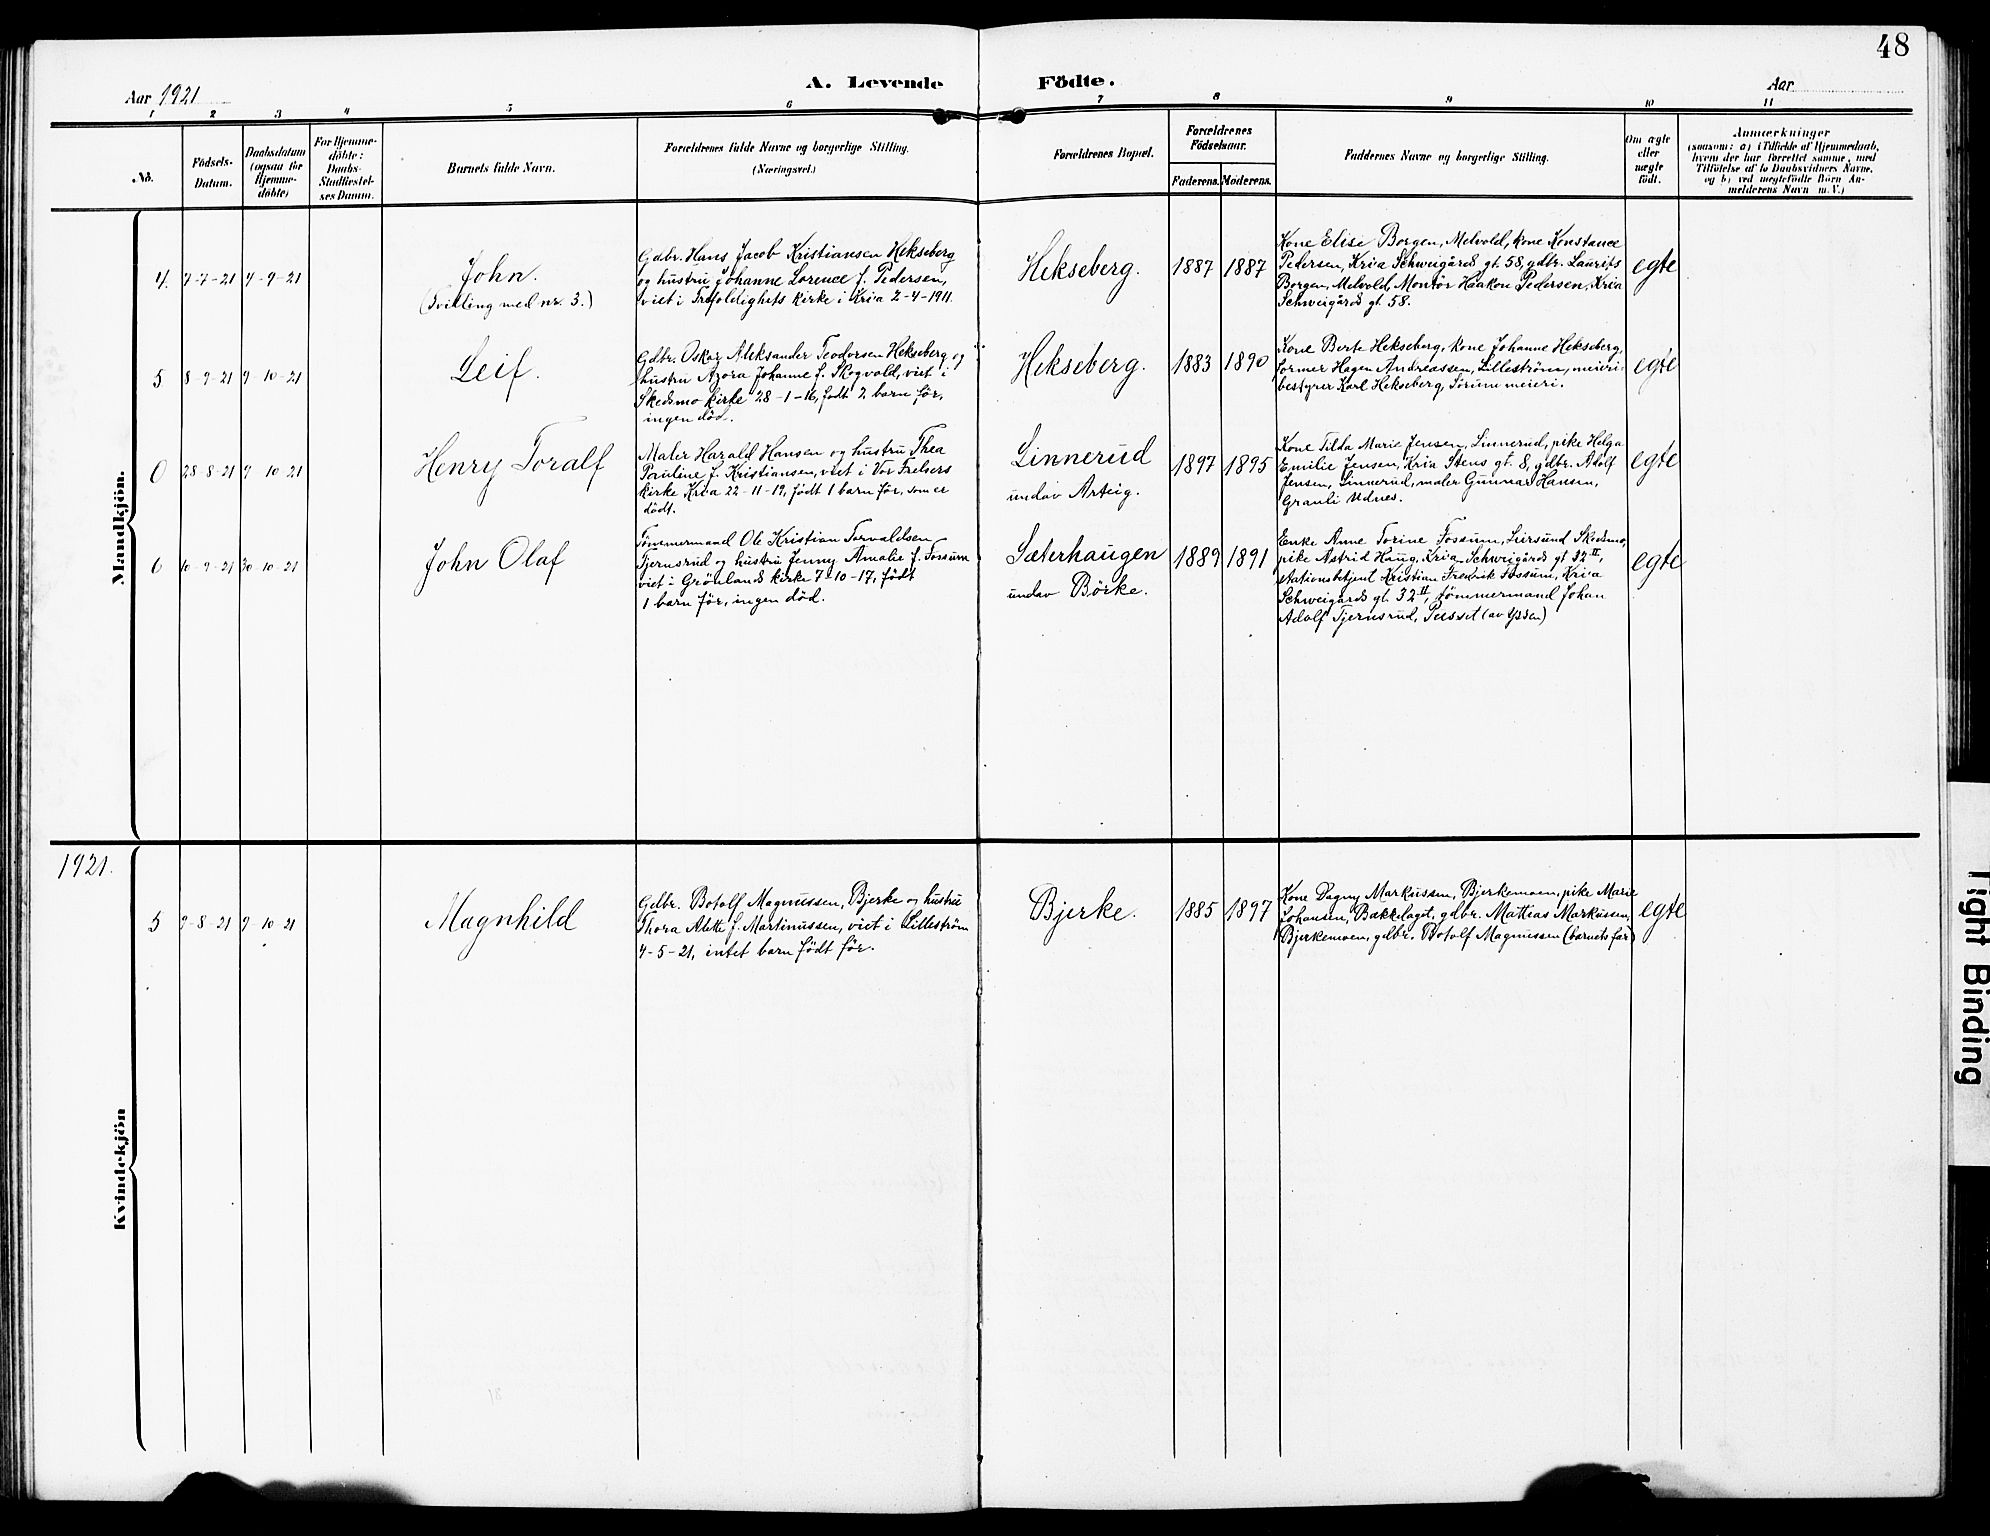 48
A. Levende Födte.
Aar 1921
Aar
1 2 3 4 5 6 7 8 9 10 11
No.
Födsels-
Datum.
Daabsdatum
(ogsaa for
Hjemme-
döbte)
For Hjemme-
döbte:
Daabs-
Stadfæstel-
ses Datum.
Barnets fulde Navn.
Forældrenes fulde Navne og borgerlige Stilling.
(Næringsvei.)
Forældrenes Bopæl.
Forældrenes
Födselsaar.
Faderens. Moderens.
Faddernes Navne og borgerlige Stilling.
Om ægte
eller
uægte
födt.
Anmærkninger
(saasom: a) i Tilfælde af Hjemmedaab,
hvem der har forrettet samme, med
Tilföielse af to Daabsvidners Navne,
og b) ved uægtefödte Börn An-
melderens Navn m. V.)
Mandkjön.
4. 7-7-21 4-9-21
John.
(Tvilling med nr. 3.)
Gdbr. Hans Jacob Kristiansen Hekseberg
og hustru Johanne Lorence f. Pedersen,
viet i Trefoldighets kirke i Kria 2-4-1911.
Hekseberg.
1887 1887
Kone Elise Borgen, Melvold, kone Konstance
Pedersen, Kria Schweigårds gt. 58, gdbr. Laurits
Borgen, Melvold, Montör Haakon Pedersen, Kria
Schweigårds gt. 58.
egte
5 8-9-21 9-10-21
Leif.
Gdbr. Oskar Aleksander Teodorsen Hekseberg og
hustru Azora Johanne f. Skogvold, viet i
Skedsmo kirke 28-1-16, födt 2 barn för,
ingen död.
Hekseberg.
1883 1890
Kone Berte Hekseberg, kone Johanne Hekseberg,
former Hagen Andreassen, Lilleström, meieri-
bestyrer Karl Hekseberg, Sörum meieri.
egte
0 28-8-21 9-10-21
Henry Toralf
Maler Harald Hansen og hustru Thea
Pauline f. Kristiansen, viet i Vor Frelsers
kirke Kria 22-11-19, födt 1 barn för, som er
dödt.
Linnerud
undav Arteig.
1897 1895
Kone Tilda Marie Jensen, Linnerud, pike Helga
Emilie Jensen, Kria Stens gt. 8, gdbr. Adolf
Jensen, Linnerud, maler Gunnar Hansen,
Granli Udnes.
egte
6 10-9-21 30-10-21
John Olaf
Tömmermand Ole Kristian Torvaldsen
Tjernsrud og hustru Jenny Amalie f. Fossum
viet i Grönlands kirke 7-10-17, födt
1 barn för, ingen död.
Sæterhaugen
undav Börke.
1889 1891
Enke Anne Torine Fossum, Leirsund Skedsmo,
pike Astrid Haug, Kria Schweigårds gt 32 II,
stationsbetjent Kristian Fredrik Fossum, Kria
Schweigårds gt. 32 II, tömmermand Johan
Adolf Tjernsrud,
egte
1921.
Kvindekjön
5 9-10-21
Magnhild
Gdbr. Botolf Magnussen, Bjerke og hustru
Thora Alette f. Martinussen, viet i Lilleström
4-5-21, intet barn födt för.
Bjerke.
1885 1897
Kone Dagny Markussen, Bjerkemoen, pike Marie
Johansen, Bækkelaget, gdbr. Mattias Markussen,
Bjerkemoen, gdbr. Botolf Magnussen (barnets far)
egte
Tight Binding